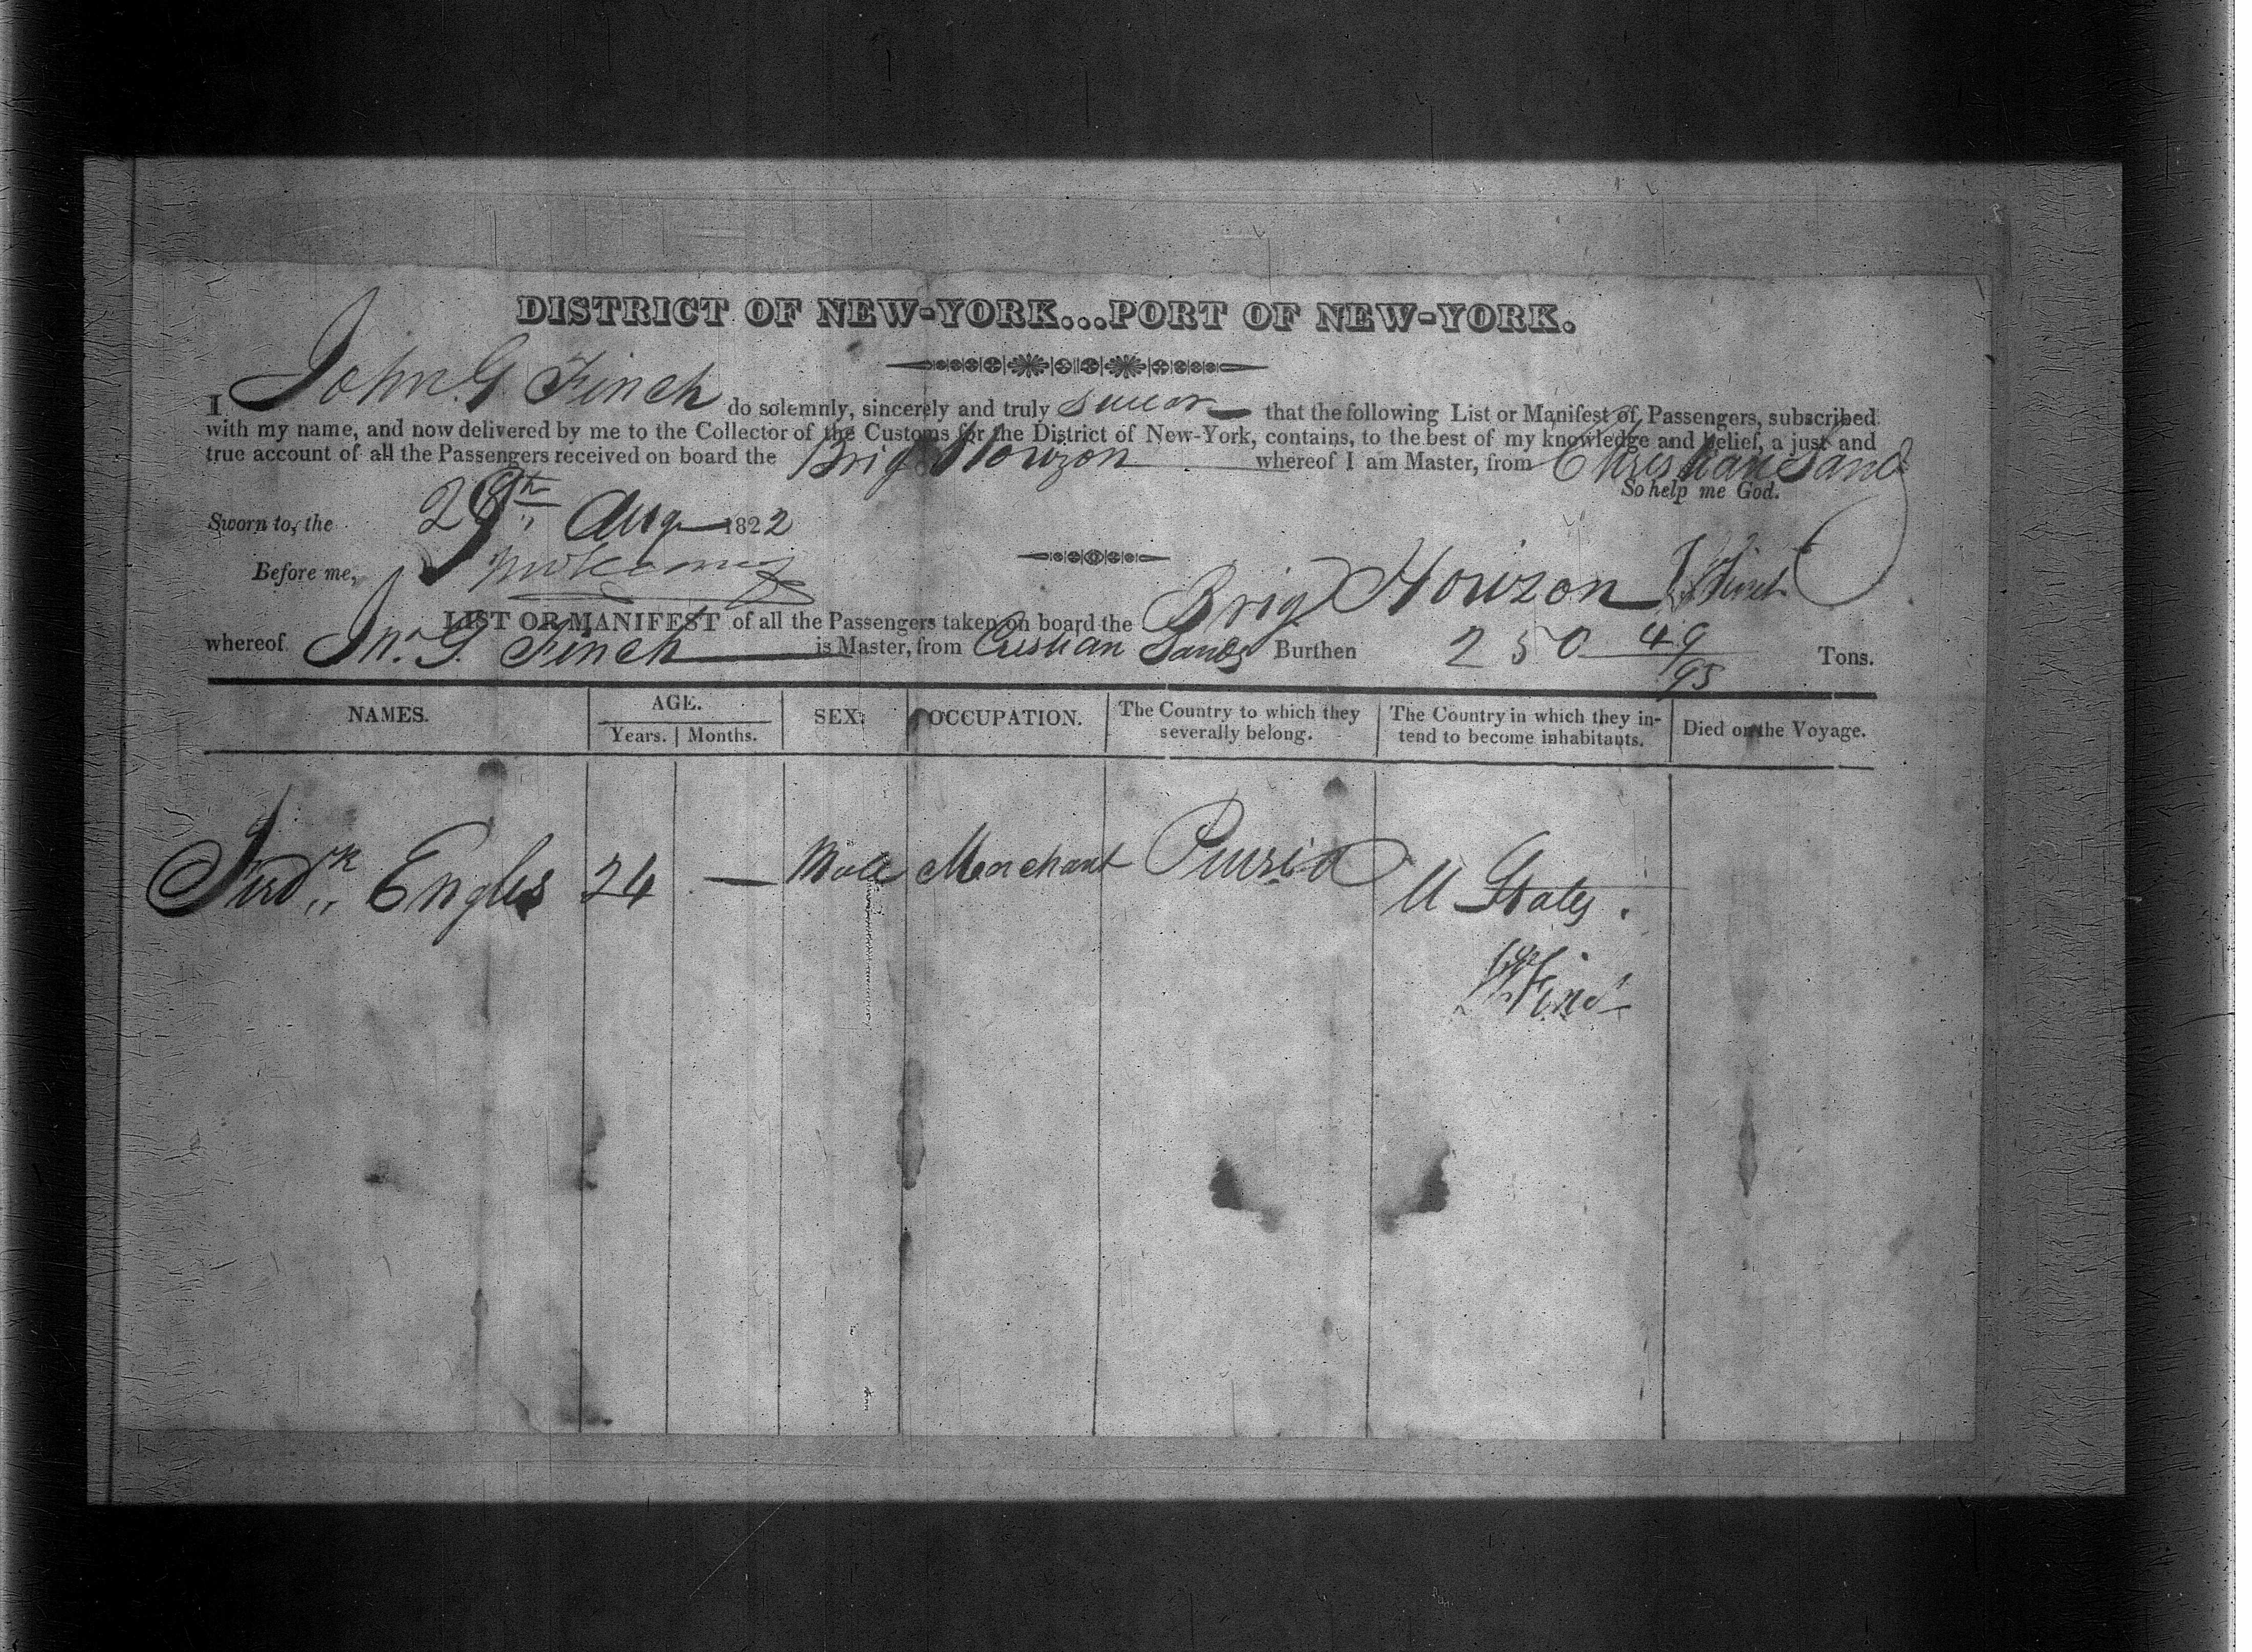 DISTRICT OF NEW-YORK...PORT OF NEW-YORK.
I John G Finch do solemnly, sincerely and truly swear that the following List or Manifest of Passengers, subscribed
with my name, and now delivered by me to the Collector of the Customs for the District of New-York, contains, to the best of my knowledge and belief, a just and
true account of all the Passengers received on board the Brig Howzon whereof I am Master, from Christian Sand
So help me God.
Sworn to, the 29th Aug 1822
Before me,
LIST OR MANIFEST of all the Passengers taken on board the Brig Howzon
whereof Jno. G. Finch is Master, from Cristian Sands Burthen 250 49/95 Tons.
NAMES. AGE. SEX. OCCUPATION. The Country to which they severally belong. The Country in which they intend to become inhabitants. Died on the Voyage.
Years. Months.
Engles 24 — Male Merchant Pursia U States.